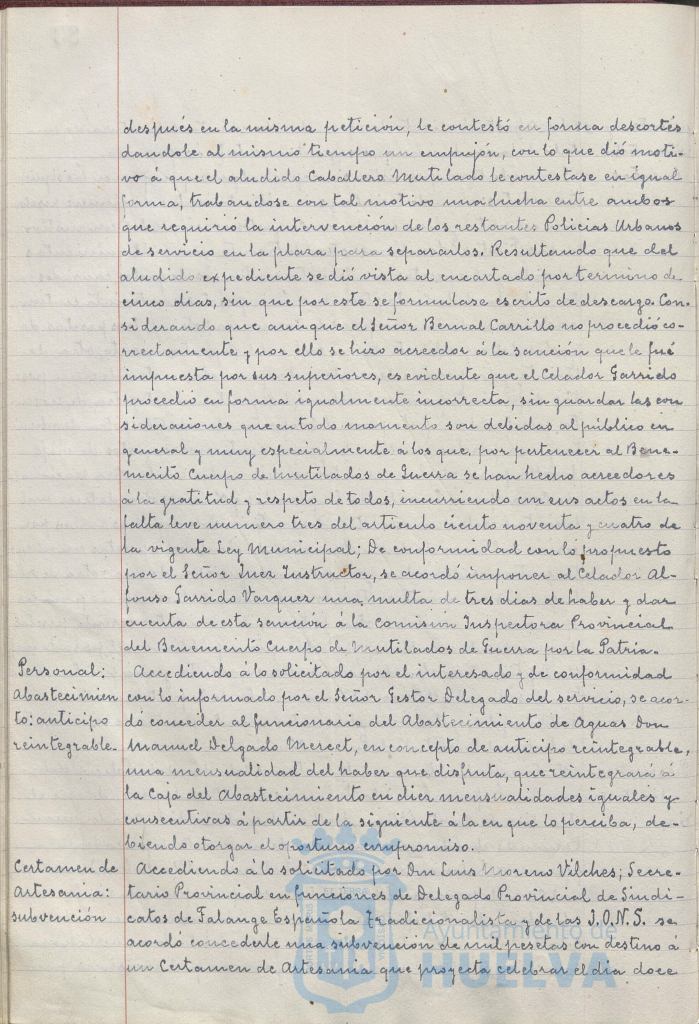 después en la misma petición, le contestó en forma descortés
dandole al mismo tiempo un empujón, con lo que dió moti-
vo á que el aludido Caballero Mutilado le contestase en igual
forma, trabándose con tal motivo una lucha entre ambos
que requirió la intervención de los restantes Policias Urbanos
de servicio en la plaza para separarlos. Resultando que del
aludido expediente se dió vista al encartado por termino de
cinco dias, sin que por este se formulase escrito de descargo. Con-
siderando que aunque el Señor Bernal Carrillo no procedió co-
rrectamente y por ello se hizo acreedor á la sanción que le fué
impuesta por sus superiores, es evidente que el Celador Garrido
procedió en forma igualmente incorrecta, sin guardar las con
sideraciones que en todo momento son debidas al público en
general y muy especialmente á los que, por pertenecer al Bene-
merito Cuerpo de Mutilados de Guerra se han hecho acreedores
á la gratitud y respeto de todos, incurriendo con sus actos en la
falta leve numero tres del articulo ciento noventa y cuatro de
la vigente Ley Municipal; De conformidad con lo propuesto
por el Señor Juez Instructor, se acordó imponer al Celador Al-
fonso Garrido Vazquez una multa de tres dias de haber y dar
cuenta de esta sanción á la Comisión Inspectora Provincial
del Benemerito Cuerpo de Mutilados de Guerra por la Patria.
Personal: Accediendo á lo solicitado por el interesado y de conformidad
Abastecimien con lo informado por el Señor Gestor Delegado del servicio, se acor-
to: anticipo dó conceder al funcionario del Abastecimiento de Aguas Don
reintegrable. Manuel Delgado Merect, en concepto de anticipo reintegrable,
una mensualidad del haber que disfruta, que reintegrará á
la Caja del Abastecimiento en diez mensualidades iguales y
consecutivas á partir de la siguiente á la en que lo perciba, de-
biendo otorgar el oportuno compromiso.
Certamen de Accediendo á lo solicitado por Don Luis Moreno Vilches; Secre-
Artesania: tario Provincial en funciones de Delegado Provincial de Sindi-
subvención catos de Falange Española Tradicionalista y de las J.O.N.S. se
acordó concederle una subvención de mil pesetas con destino á
un Certamen de Artesania que proyecta celebrar el dia doce
Ayuntamiento de
HUELVA